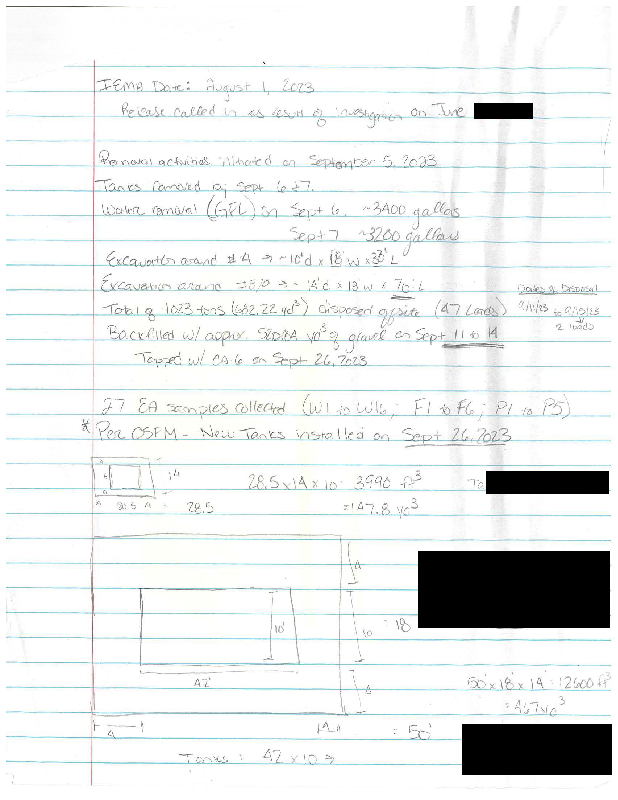 IEMA Date: August 1, 2023
Release called in as result of investigation on June
Removal activities initiated on September 5, 2023
Tanks removed on Sept 6 & 7.
Water removal (GFL) on Sept 6. ~3400 gallons
Sept 7 ~3200 gallons
Excavation around #4 → ~10'd x 18' w x L
Excavation around → ~ 14'd x 18 w x 70' L
Dates of Disposal
Total of 1023 tons (682.22 yd³) disposed offsite (47 Loads)
to
2 loads
Backfilled w/ approx. yd³ of gravel on Sept 11 to 14
Topped w/ CA-6 on Sept 26, 2023
27 EA samples collected (W1 to W16; F1 to F6; P1 to P5)
* Per OSFM - New Tanks installed on Sept 26, 2023
28.5 x 14 x 10 = 3990 ft³
4
4 20.5 4 = 28.5
= 147.8 yd³
4
10'
10
= 18
42'
4
50' x 18' x 14' = 12600 ft³
= 467 yd³
4
= 50'
Tanks: 42 x 10 →